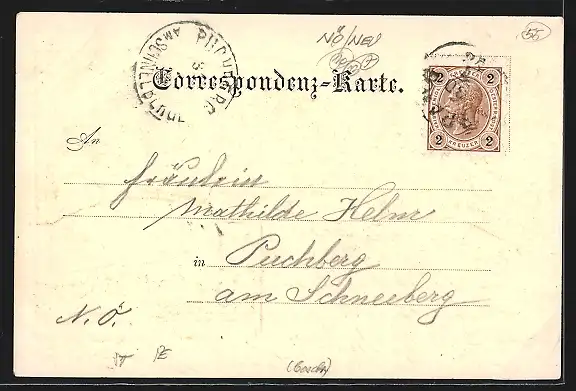 55
NÖ/NEU
PUCHBERG
AM SCHNEEBERG
Correspondenz-Karte.
2 2
2 KREUZER 2
An
Fräulein
Mathilde Helm
in Puchberg
am Schneeberg
N. Ö.